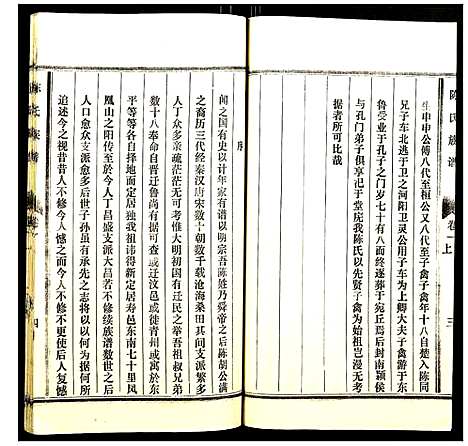 陈氏族谱
卷一上
三
生申申公傅八代至桓公又八代至子禽子禽年十八自楚入陈同
兄子车北逃于卫之河阳卫灵公用子车为上卿大夫子禽游于东
鲁受业于孔子之门岁七十有八而终遂葬于宛丘后封南颍侯
与孔门弟子俱享祀于堂庑我陈氏以先贤子禽为始祖岂漫无考
据者所可比哉
序
闻之国有史以计年家有谱以明宗吾陈姓乃舜帝之后陈胡公满
之裔历三代经秦汉唐宋数十朝数千载沧海桑田其间支派繁多
人丁众多亲疏茫茫无可考惟大明初国有迁民之举吾祖叔兄弟
数十八奉命自晋迁鲁尚有相据可考或沂或莒或徙青州或寓於东
平等等各自择地而定居独我祖讳得新定居於寿邑东南七十里凤
凰山之阳传至我十世人丁昌盛支派大昌若不修续族谱数世之上
人口愈众支派愈多后世子孙虽有承先之志将以以何为据何所
追述今之视昔昔人不修今人憾之而今人不修不更使后人复憾
四